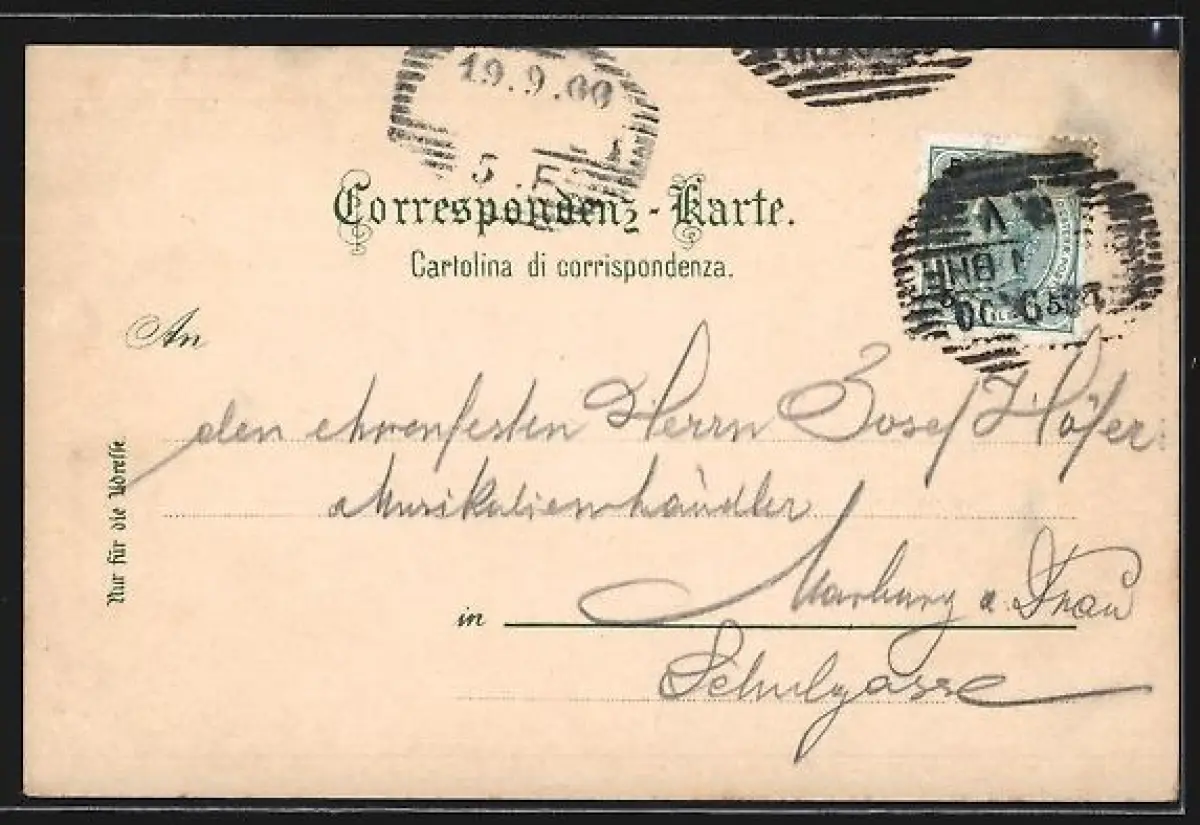 19.9.00
5
Correspondenz-Karte.
Cartolina di corrispondenza.
An
den ehrenfesten Herrn Josef Höfer
Musikalienhändler
in Marburg a. Drau
Schulgasse
Nur für die Adresse